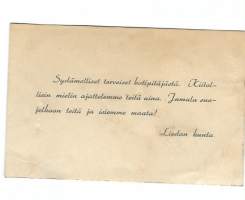 Sydämelliset terveiset kotipitäjästä. Kiitol-
lisin mielin ajattelemme teitä aina. Jumala suo-
jelkoon teitä ja isiemme maata!
Liedon kunta